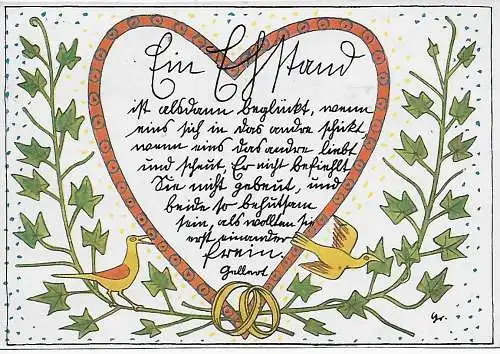 Ein Ehstand
ist alsdann beglückt, wenn
eins sich in das andre schickt
wenn eins das andre liebt
und scheut, Er nicht befiehlt
Sie nicht gebeut, und
beide so behutsam
sein, als wollten sie
erst einander
frein.
Gellert.
Gr.